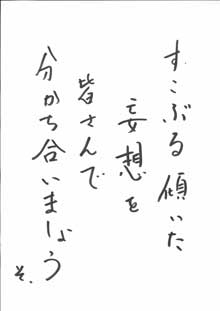 すこぶる傾いた
妄想を
皆さんで
分かち合いましょう
そ.